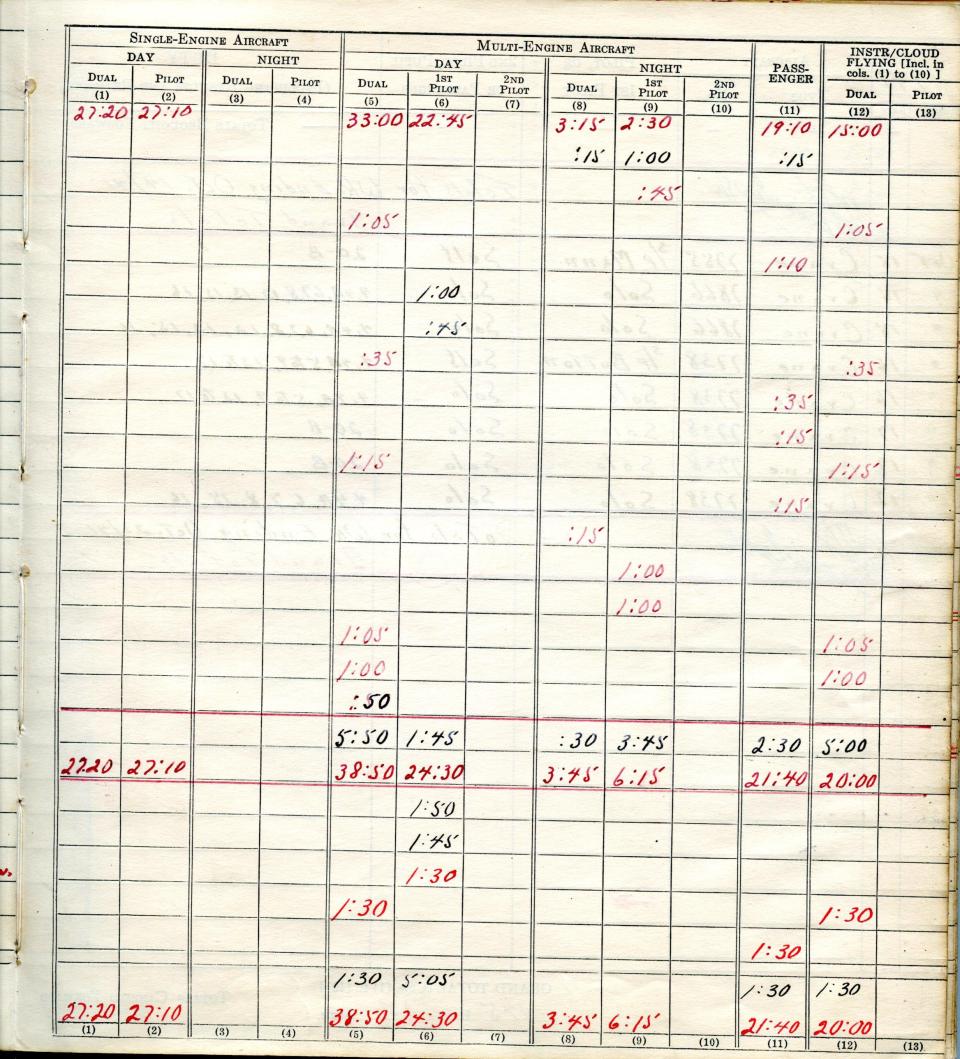 SINGLE-ENGINE AIRCRAFT MULTI-ENGINE AIRCRAFT PASS-ENGER INSTR/CLOUD FLYING [Incl. in cols. (1) to (10) ]
DAY NIGHT DAY NIGHT
DUAL PILOT DUAL PILOT DUAL 1ST PILOT 2ND PILOT DUAL 1ST PILOT 2ND PILOT DUAL PILOT
(1) (2) (3) (4) (5) (6) (7) (8) (9) (10) (11) (12) (13)
27:20 27:10 33:00 22:45 3:15 2:30 19:10 15:00
:15 1:00 :15
:45
1:05 1:05
1:10
1:00
:45
:35 :35
:35
:15
1:15 1:15
:15
:15
1:00
1:00
1:05 1:05
1:00 1:00
:50
5:50 1:45 :30 3:45 2:30 5:00
27.20 27:10 38:50 24:30 3:45 6:15 21:40 20:00
1:50
1:45
1:30
1:30 1:30
1:30
1:30 5:05 1:30 1:30
27:20 27:10 38:50 24:30 3:45 6:15 21:40 20:00
(1) (2) (3) (4) (5) (6) (7) (8) (9) (10) (11) (12) (13)